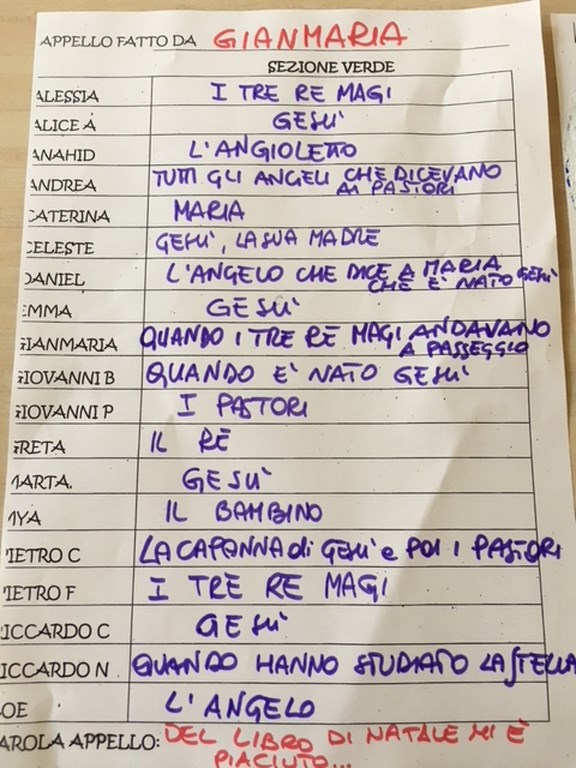 APPELLO FATTO DA GIANMARIA
SEZIONE VERDE
ALESSIA I TRE RE MAGI
ALICE A GESU'
ANAHID L'ANGIOLETTO
ANDREA TUTTI GLI ANGELI CHE DICEVANO
AI PASTORI
CATERINA MARIA
CELESTE GESU', LA SUA MADRE
DANIEL L'ANGELO CHE DICE A MARIA
CHE E' NATO GESU'
EMMA GESU'
GIANMARIA QUANDO I TRE RE MAGI ANDAVANO
A PASSEGGIO
GIOVANNI B QUANDO E' NATO GESU'
GIOVANNI P I PASTORI
GRETA IL RE
MARTA. GESU'
MYA IL BAMBINO
PIETRO C LA CAPANNA di GESU' e POI I PASTORI
PIETRO F I TRE RE MAGI
RICCARDO C GESU'
RICCARDO N QUANDO HANNO STUDIATO LA STELLA
OE L'ANGELO
PAROLA APPELLO: DEL LIBRO DI NATALE MI È
PIACIUTO...